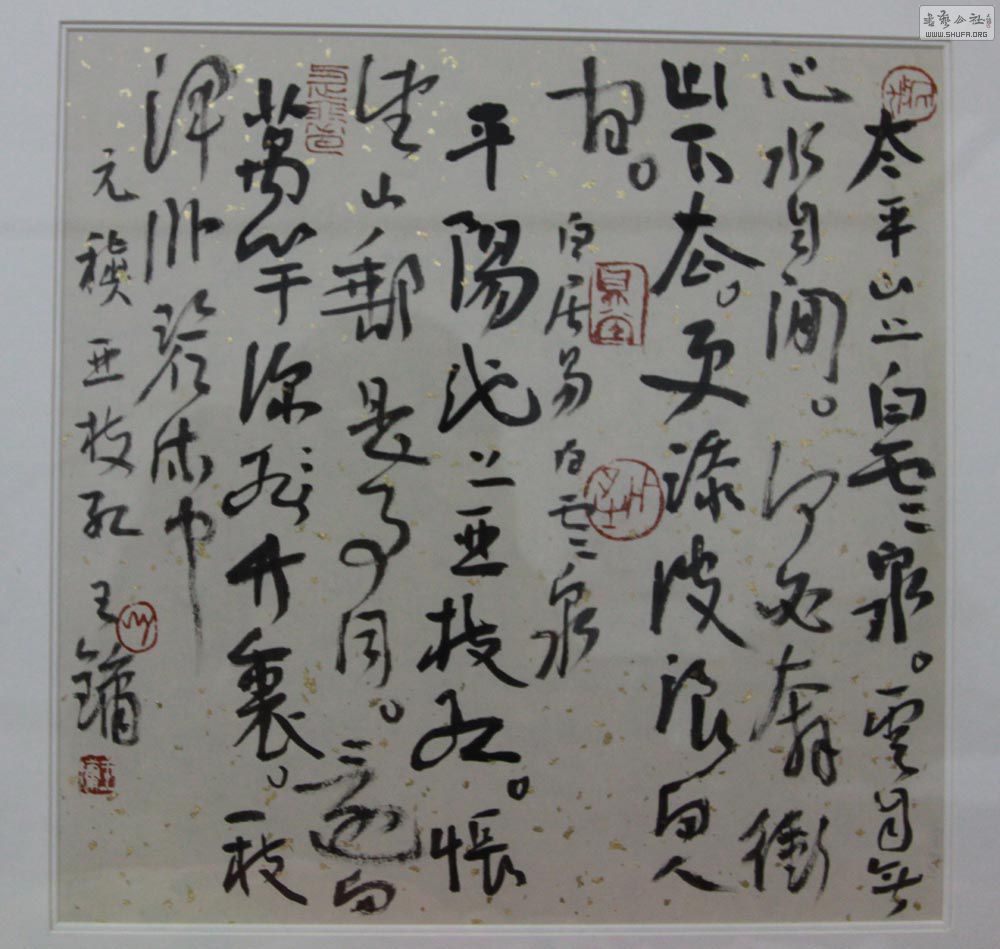 太平山上白云泉。雲自無
心水自闲。何必奔衝
山下去。更添波浪向人
间。 白居易白云泉
平陽池上亞枝红。悵
望山郵是事同。还向
萬竿深处竹裏。一枝
浑卧碧流中
元稹亞枝红 王鏞
書藝公社
WWW.SHUFA.ORG